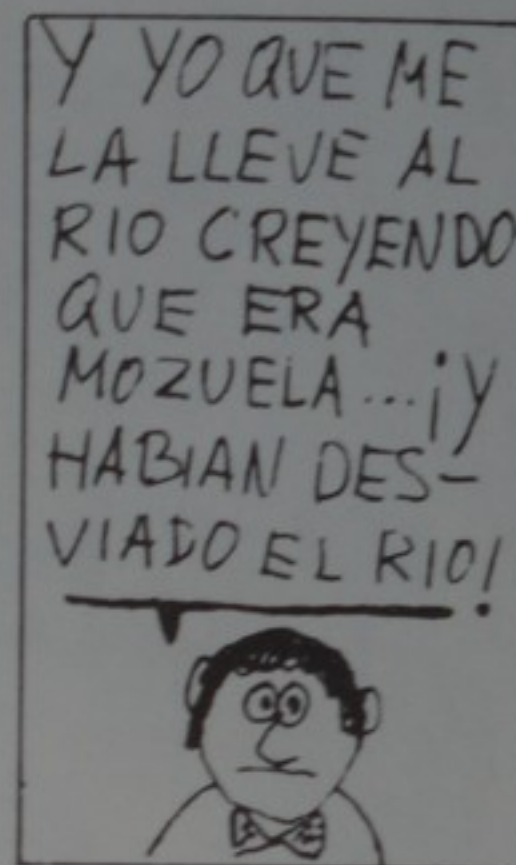 Y YO QUE ME
LA LLEVE AL
RIO CREYENDO
QUE ERA
MOZUELA...¡Y
HABIAN DES-
VIADO EL RIO!